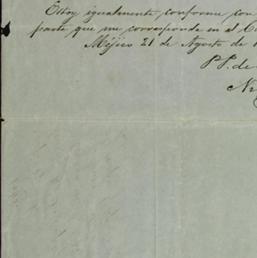 Estoy igualmente conforme con
parte que me corresponde en el C
Méjico 21 de Agosto de 1
P.P. de